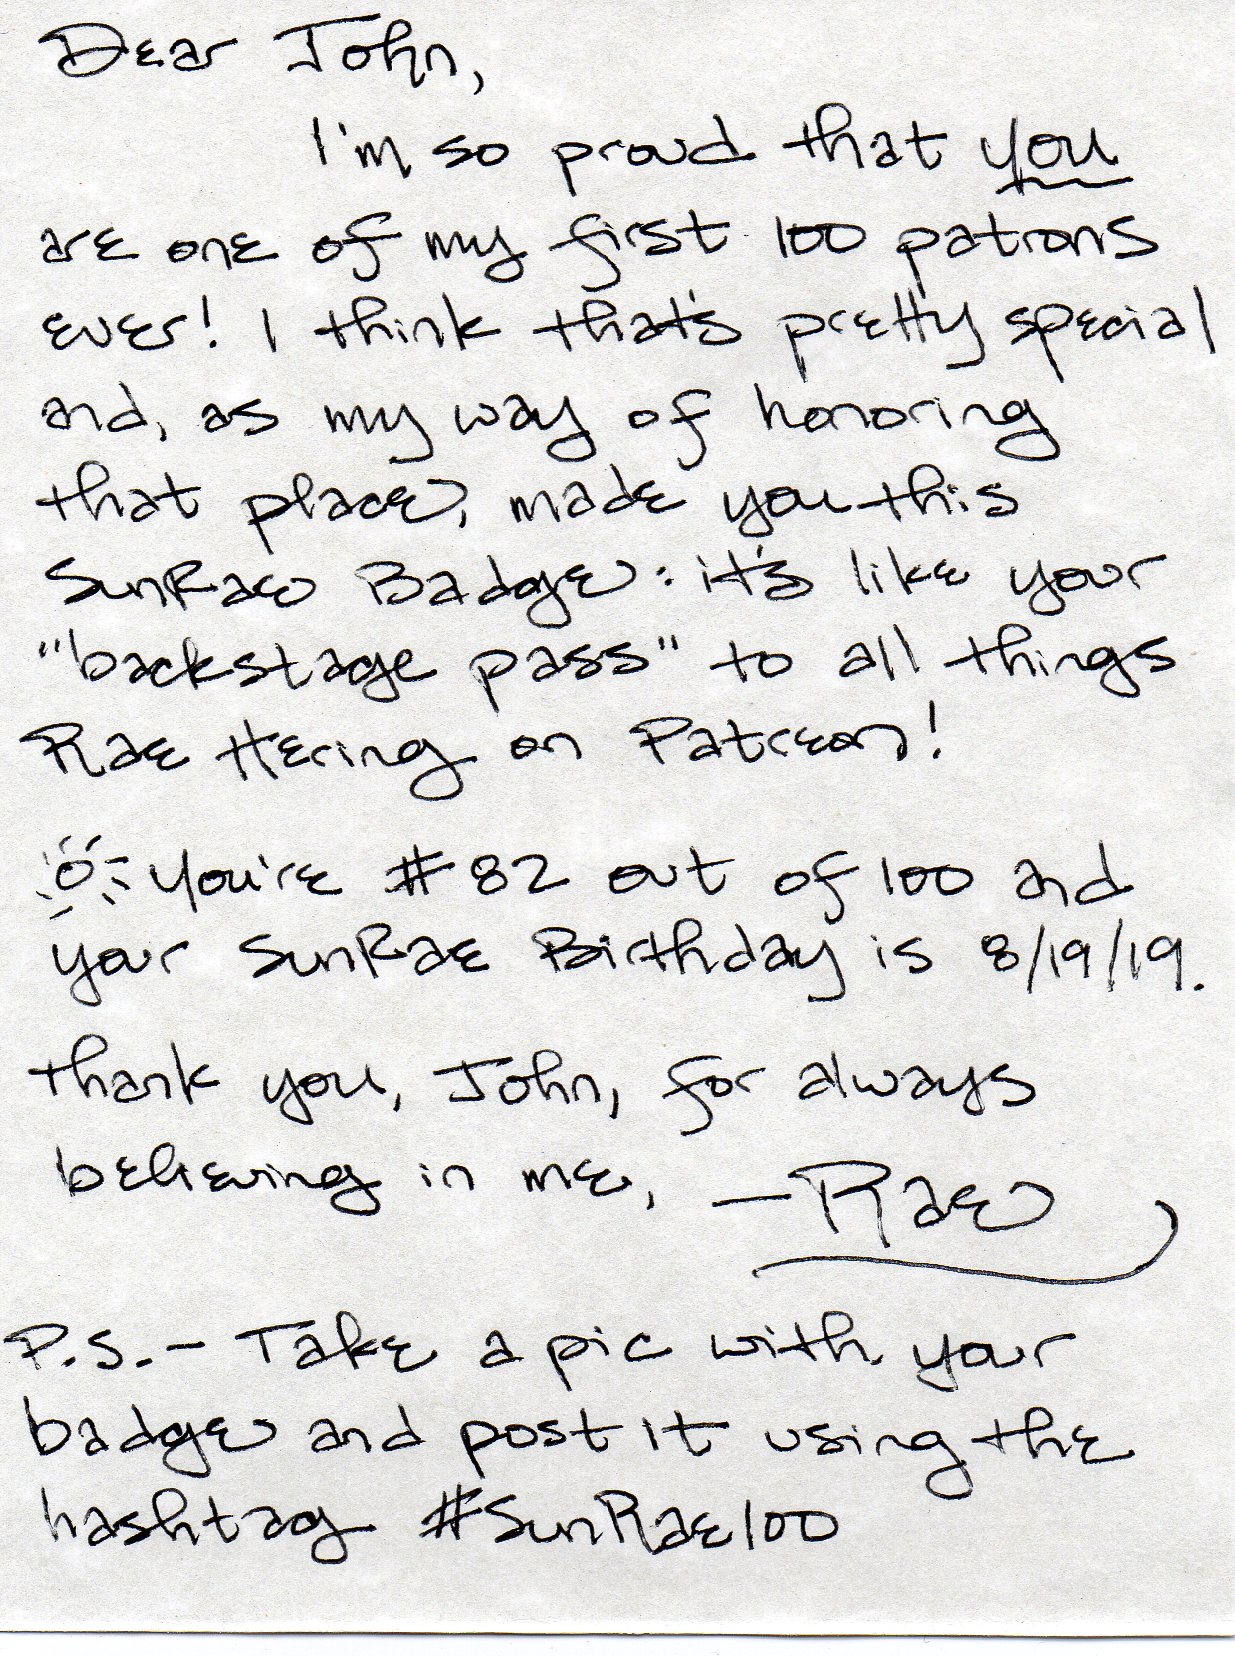 Dear John,
I'm so proud that you
are one of my first 100 patrons
ever! I think that's pretty special
and, as my way of honoring
that place, made you this
SunRae Badge: it's like your
"backstage pass" to all things
Rae Hering on Patreon!
You're #82 out of 100 and
your SunRae Birthday is 8/19/19.
Thank you, John, for always
believing in me, —Rae
P.S. — Take a pic with your
badge and post it using the
hashtag #SunRae100